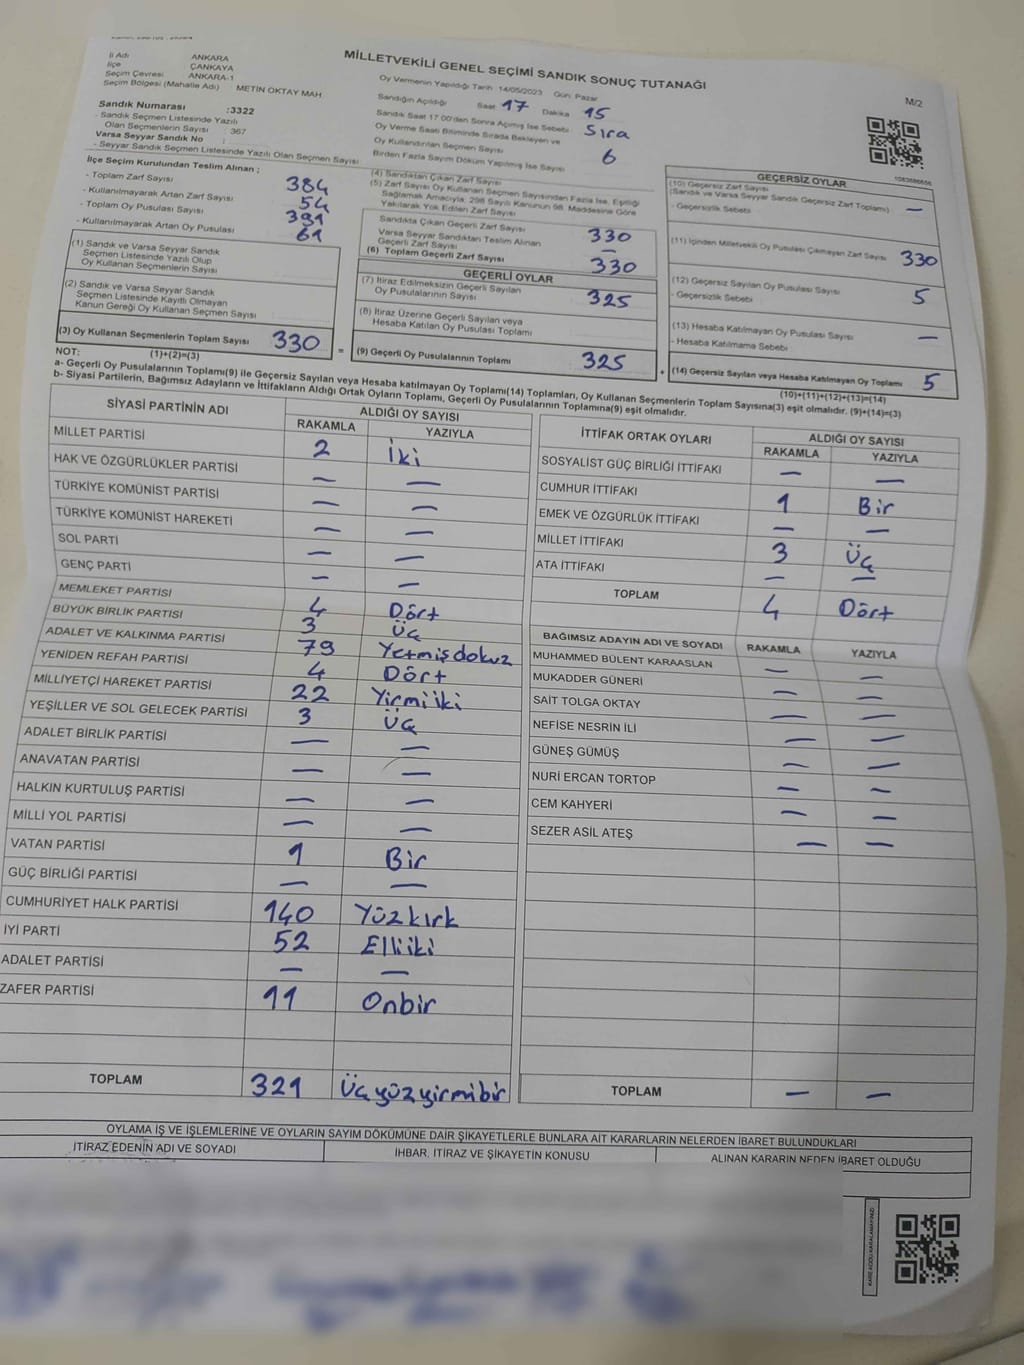 MİLLETVEKİLİ GENEL SEÇİMİ SANDIK SONUÇ TUTANAĞI
M/2
İl Adı : ANKARA
İlçe : ÇANKAYA
Seçim Çevresi : ANKARA-1
Seçim Bölgesi (Mahalle Adı) METİN OKTAY MAH
Sandık Numarası :3322
- Sandık Seçmen Listesinde Yazılı
Olan Seçmenlerin Sayısı : 367
Varsa Seyyar Sandık No :
- Seyyar Sandık Seçmen Listesinde Yazılı Olan Seçmen Sayısı
Oy Vermenin Yapıldığı Tarih 14/05/2023 Gün: Pazar
Sandığın Açıldığı Saat 17 Dakika 15
Sandık Saat 17.00'den Sonra Açılmış İse Sebebi Sıra
Oy Verme Saati Bitiminde Sırada Bekleyen ve
Oy Kullandırılan Seçmen Sayısı 6
Birden Fazla Sayım Döküm Yapılmış İse Sayısı
İlçe Seçim Kurulundan Teslim Alınan ;
- Toplam Zarf Sayısı 384
- Kullanılmayarak Artan Zarf Sayısı 54
- Toplam Oy Pusulası Sayısı 391
- Kullanılmayarak Artan Oy Pusulası 61
(1) Sandık ve Varsa Seyyar Sandık
Seçmen Listesinde Yazılı Olup
Oy Kullanan Seçmenlerin Sayısı
(2) Sandık ve Varsa Seyyar Sandık
Seçmen Listesinde Kayıtlı Olmayan
Kanun Gereği Oy Kullanan Seçmen Sayısı
(3) Oy Kullanan Seçmenlerin Toplam Sayısı 330
(1)+(2)=(3)
(4) Sandıktan Çıkan Zarf Sayısı
(5) Zarf Sayısı Oy Kullanan Seçmen Sayısından Fazla İse, Eşitliği
Sağlamak Amacıyla, 298 Sayılı Kanunun 98. Maddesine Göre
Yakılarak Yok Edilen Zarf Sayısı
Sandıkta Çıkan Geçerli Zarf Sayısı 330
Varsa Seyyar Sandıktan Teslim Alınan
Geçerli Zarf Sayısı —
(6) Toplam Geçerli Zarf Sayısı 330
GEÇERLİ OYLAR
(7) İtiraz Edilmeksizin Geçerli Sayılan
Oy Pusulalarının Sayısı 325
(8) İtiraz Üzerine Geçerli Sayılan veya
Hesaba Katılan Oy Pusulası Toplamı
= (9) Geçerli Oy Pusulalarının Toplamı 325
GEÇERSİZ OYLAR
(10) Geçersiz Zarf Sayısı
(Sandık ve Varsa Seyyar Sandık Geçersiz Zarf Toplamı) —
- Geçersizlik Sebebi
(11) İçinden Milletvekili Oy Pusulası Çıkmayan Zarf Sayısı 330
(12) Geçersiz Sayılan Oy Pusulası Sayısı 5
- Geçersizlik Sebebi
(13) Hesaba Katılmayan Oy Pusulası Sayısı —
- Hesaba Katılmama Sebebi
+ (14) Geçersiz Sayılan veya Hesaba Katılmayan Oy Toplamı 5
(10)+(11)+(12)+(13)=(14)
NOT:
a- Geçerli Oy Pusulalarının Toplamı(9) ile Geçersiz Sayılan veya Hesaba katılmayan Oy Toplamı(14) Toplamları, Oy Kullanan Seçmenlerin Toplam Sayısına(3) eşit olmalıdır. (9)+(14)=(3)
b- Siyasi Partilerin, Bağımsız Adayların ve İttifakların Aldığı Ortak Oyların Toplamı, Geçerli Oy Pusulalarının Toplamına(9) eşit olmalıdır.
SİYASİ PARTİNİN ADI ALDIĞI OY SAYISI
RAKAMLA YAZIYLA
MİLLET PARTİSİ 2 İki
HAK VE ÖZGÜRLÜKLER PARTİSİ — —
TÜRKİYE KOMÜNİST PARTİSİ — —
TÜRKİYE KOMÜNİST HAREKETİ — —
SOL PARTİ — —
GENÇ PARTİ — —
MEMLEKET PARTİSİ 4 Dört
BÜYÜK BİRLİK PARTİSİ 3 Üç
ADALET VE KALKINMA PARTİSİ 79 Yetmişdokuz
YENİDEN REFAH PARTİSİ 4 Dört
MİLLİYETÇİ HAREKET PARTİSİ 22 Yirmiiki
YEŞİLLER VE SOL GELECEK PARTİSİ 3 Üç
ADALET BİRLİK PARTİSİ — —
ANAVATAN PARTİSİ — —
HALKIN KURTULUŞ PARTİSİ — —
MİLLİ YOL PARTİSİ — —
VATAN PARTİSİ 1 Bir
GÜÇ BİRLİĞİ PARTİSİ — —
CUMHURİYET HALK PARTİSİ 140 Yüzkırk
İYİ PARTİ 52 Elliiki
ADALET PARTİSİ — —
ZAFER PARTİSİ 11 Onbir
TOPLAM 321 Üçyüzyirmibir
İTTİFAK ORTAK OYLARI ALDIĞI OY SAYISI
RAKAMLA YAZIYLA
SOSYALİST GÜÇ BİRLİĞİ İTTİFAKI — —
CUMHUR İTTİFAKI 1 Bir
EMEK VE ÖZGÜRLÜK İTTİFAKI — —
MİLLET İTTİFAKI 3 Üç
ATA İTTİFAKI — —
TOPLAM 4 Dört
BAĞIMSIZ ADAYIN ADI VE SOYADI RAKAMLA YAZIYLA
MUHAMMED BÜLENT KARAASLAN — —
MUKADDER GÜNERİ — —
SAİT TOLGA OKTAY — —
NEFİSE NESRİN İLİ — —
GÜNEŞ GÜMÜŞ — —
NURİ ERCAN TORTOP — —
CEM KAHYERİ — —
SEZER ASİL ATEŞ — —
TOPLAM — —
OYLAMA İŞ VE İŞLEMLERİNE VE OYLARIN SAYIM DÖKÜMÜNE DAİR ŞİKAYETLERLE BUNLARA AİT KARARLARIN NELERDEN İBARET BULUNDUKLARI
İTİRAZ EDENİN ADI VE SOYADI İHBAR, İTİRAZ VE ŞİKAYETİN KONUSU ALINAN KARARIN NEDEN İBARET OLDUĞU
KARE KODU KARALAMAYINIZ!